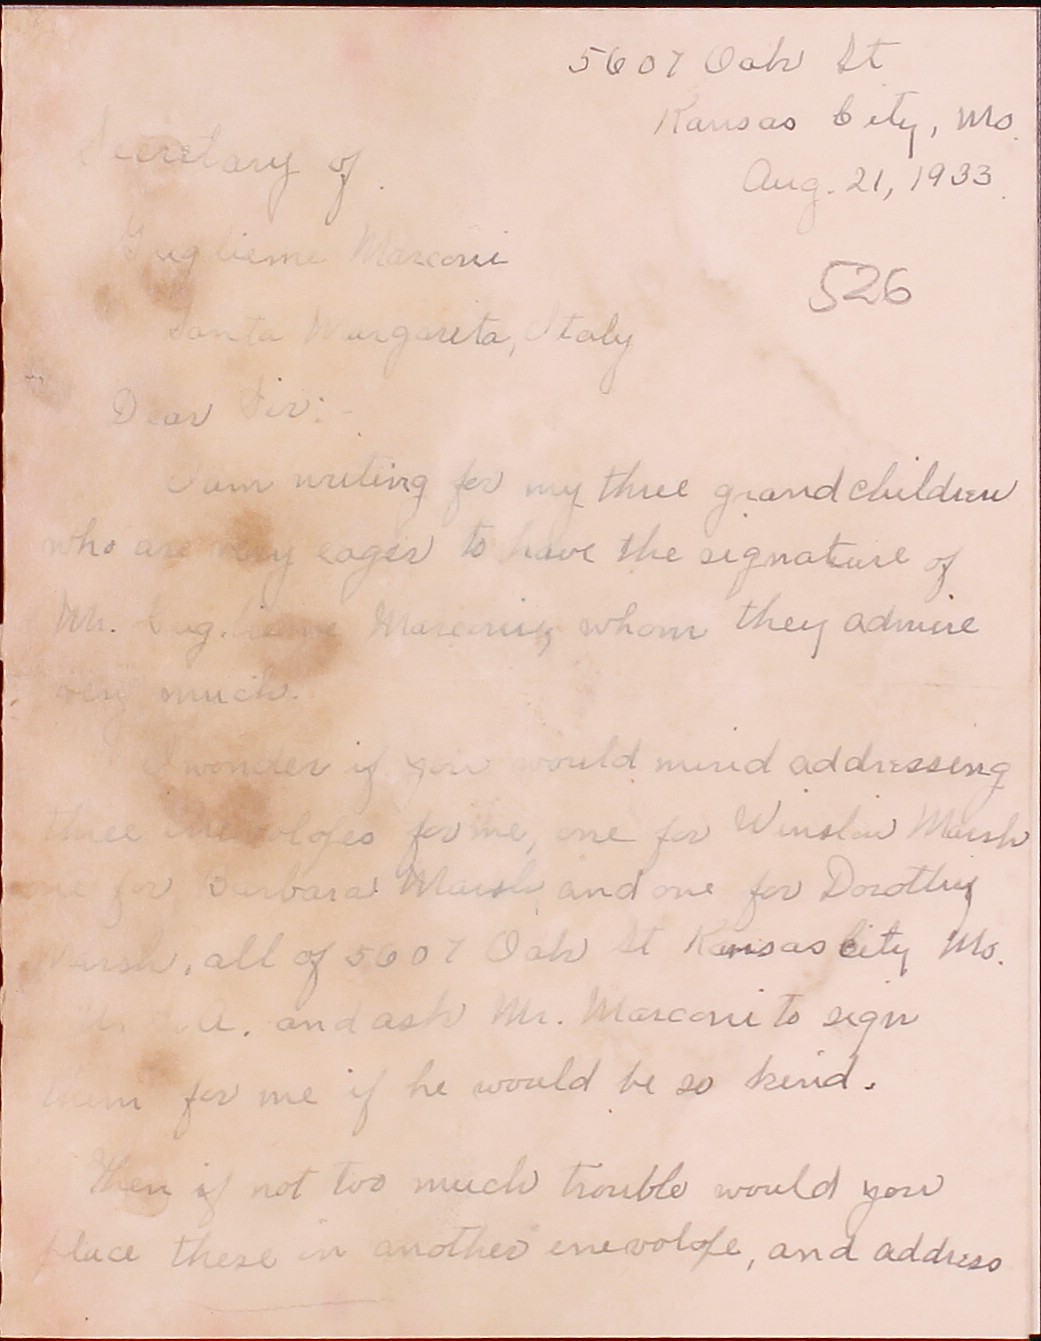 5607 Oak St
Kansas City, Mo.
Aug. 21, 1933.
Secretary of
Guglieme Marconi
526
Santa Margareta, Italy
Dear Sir:-
I am writing for my three grandchildren
who are very eager to have the signature of
Mr. Guglieme Marconi, whom they admire
very much.
I wonder if you would mind addressing
three enevolopes for me, one for Winslow Marsh
one for Barbara Marsh, and one for Dorothy
Marsh, all of 5607 Oak St Kansas City Mo.
U.S.A. and ask Mr. Marconi to sign
them for me if he would be so kind.
Then if not too much trouble would you
place these in another enevolofe, and address